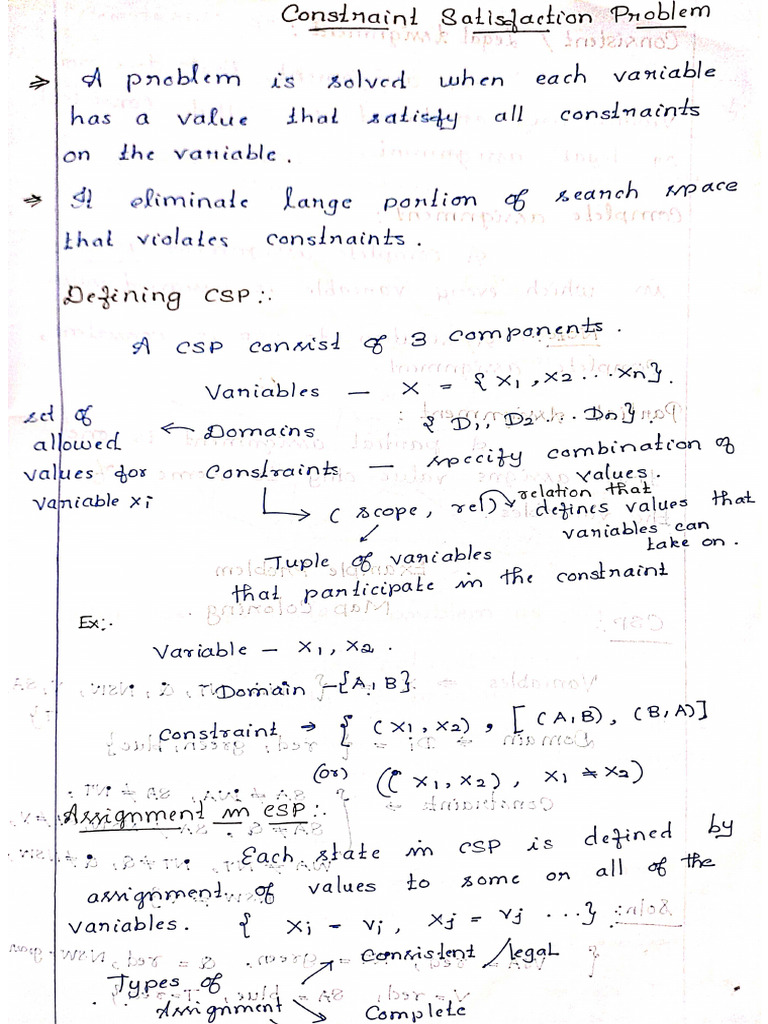 Constraint Satisfaction Problem
⇒ A problem is solved when each variable
has a value that satisfy all constraints
on the variable.
⇒ It eliminate large portion of search space
that violates constraints.
Defining CSP:.
A CSP consist of 3 components.
Variables – X = { X1, X2 ... Xn}.
set of allowed values for variable xi ← Domains { D1, D2 ... Dn}.
Constraints – specify combination of values.
↳ ( scope, rel) relation that defines values that variables can take on.
Tuple of variables
that participate in the constraint
Ex:.
Variable – X1, X2.
Domain –{A, B}.
Constraint → { (X1, X2), [ (A,B), (B,A)]
(or) (( X1, X2), X1 ≠ X2)
Assignment in CSP:.
Each state in CSP is defined by
assignment of values to some or all of the
variables. { Xi = Vi, Xj = Vj ...}.
Types of Assignment
Consistent / legal
Complete